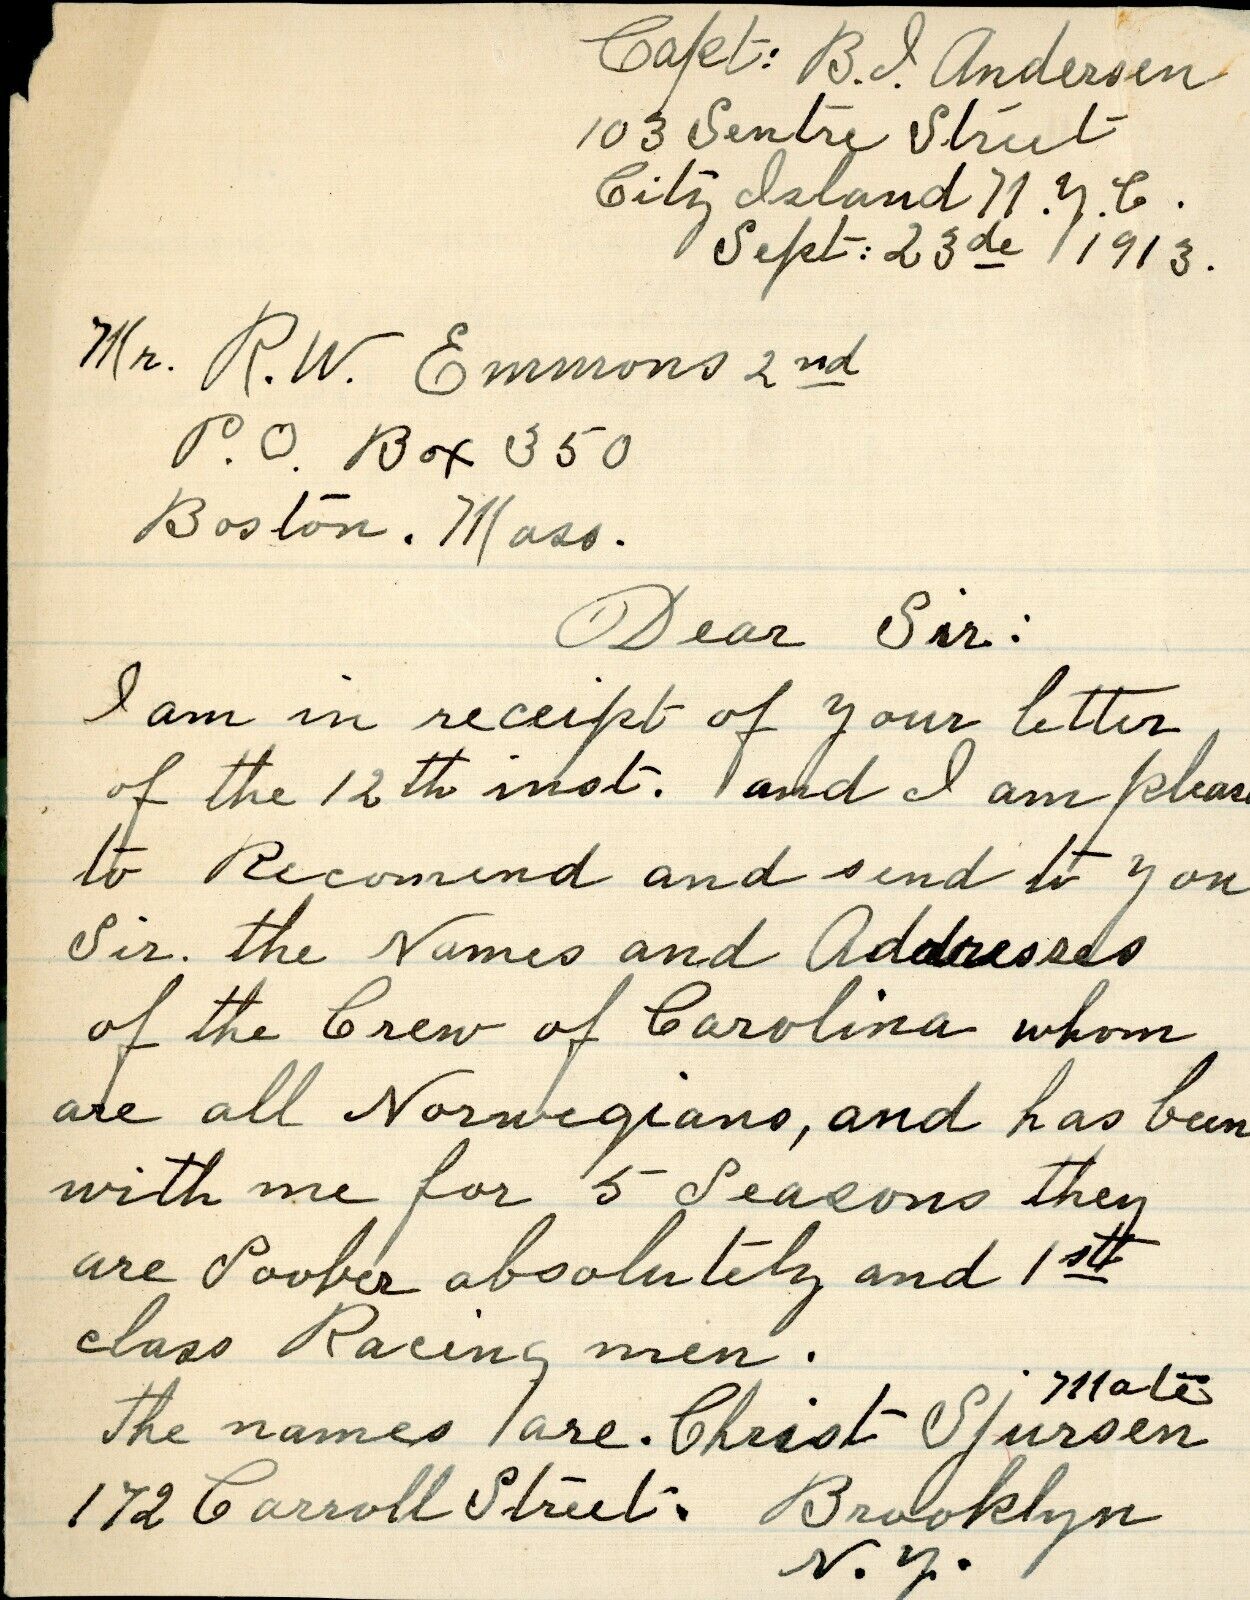 Capt: B.I. Andersen
103 Sentre Street
City Island N.Y.C.
Sept: 23de 1913.
Mr. R.W. Emmons 2nd
P.O. Box 350
Boston. Mass.
Dear Sir:
I am in receipt of your letter
of the 12th inst. and I am please
to Recomend and send to you
Sir. the Names and Addresses
of the Crew of Carolina whom
are all Norwegians, and has been
with me for 5 Seasons they
are Soober absolutely and 1stt
class Racing men.
Mate
the names are. Christ Sjursen
172 Carroll Street. Brooklyn
N.Y.